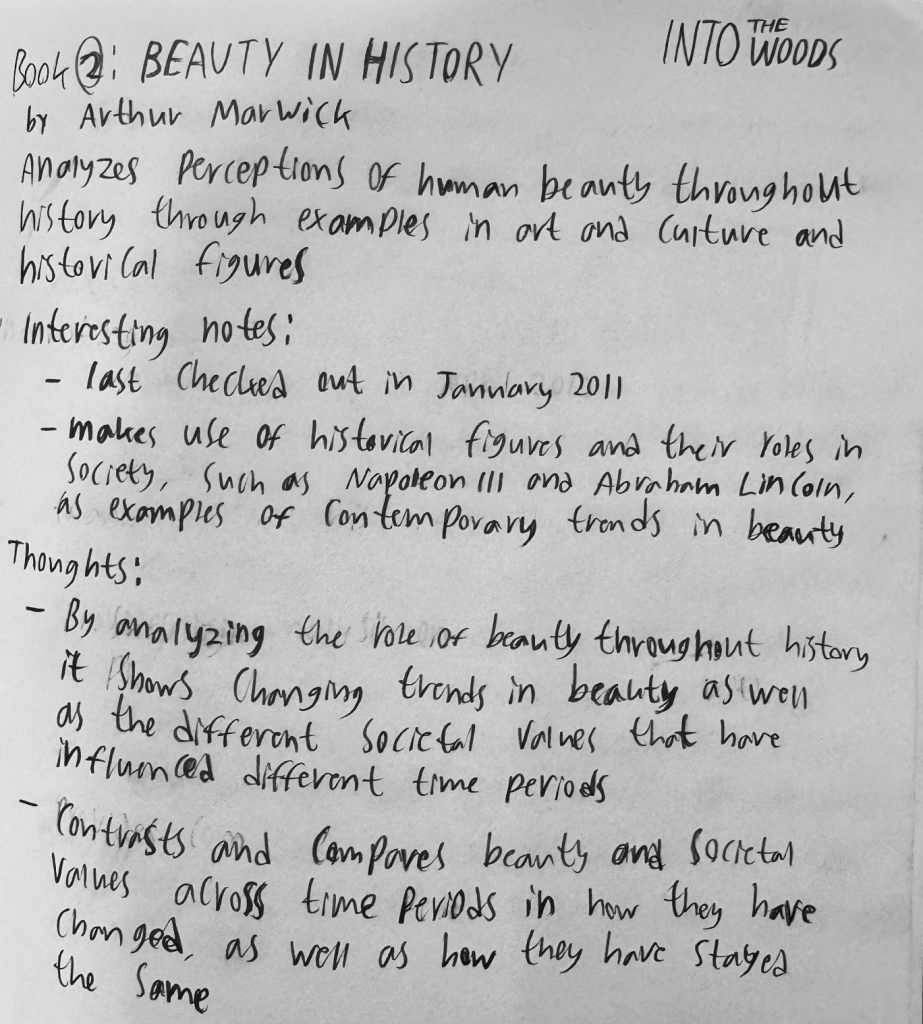 INTO THE WOODS
Book 2: BEAUTY IN HISTORY
by Arthur Marwick
Analyzes perceptions of human beauty throughout
history through examples in art and culture and
historical figures
Interesting notes:
- last checked out in January 2011
- makes use of historical figures and their roles in
society, such as Napoleon III and Abraham Lincoln,
as examples of contemporary trends in beauty
Thoughts:
- By analyzing the role of beauty throughout history
it shows changing trends in beauty as well
as the different societal values that have
influenced different time periods
- Contrasts and compares beauty and societal
values across time periods in how they have
changed, as well as how they have stayed
the same